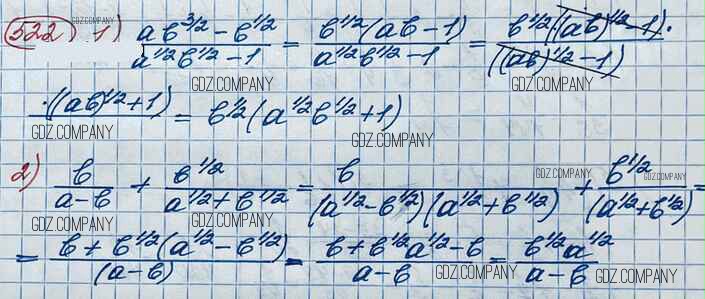 522) 1) (ab^{3/2} - b^{1/2})/(a^{1/2}b^{1/2} - 1) = (b^{1/2}(ab - 1))/(a^{1/2}b^{1/2} - 1) = (b^{1/2}((ab)^{1/2} - 1)·)/((ab)^{1/2} - 1)
·((ab)^{1/2} + 1) = b^{1/2}(a^{1/2}b^{1/2} + 1)
2) b/(a - b) + b^{1/2}/(a^{1/2} + b^{1/2}) = b/((a^{1/2} - b^{1/2})(a^{1/2} + b^{1/2})) + b^{1/2}/(a^{1/2} + b^{1/2}) =
= (b + b^{1/2}(a^{1/2} - b^{1/2}))/(a - b) = (b + b^{1/2}a^{1/2} - b)/(a - b) = (b^{1/2}a^{1/2})/(a - b)
GDZ.COMPANY
GDZ.COMPANY
GDZ.COMPANY
GDZ.COMPANY
GDZ.COMPANY
GDZ.COMPANY
GDZ.COMPANY
GDZ.COMPANY
GDZ.COMPANY
GDZ.COMPANY
GDZ.COMPANY
GDZ.COMPANY
GDZ.COMPANY
GDZ.COMPANY